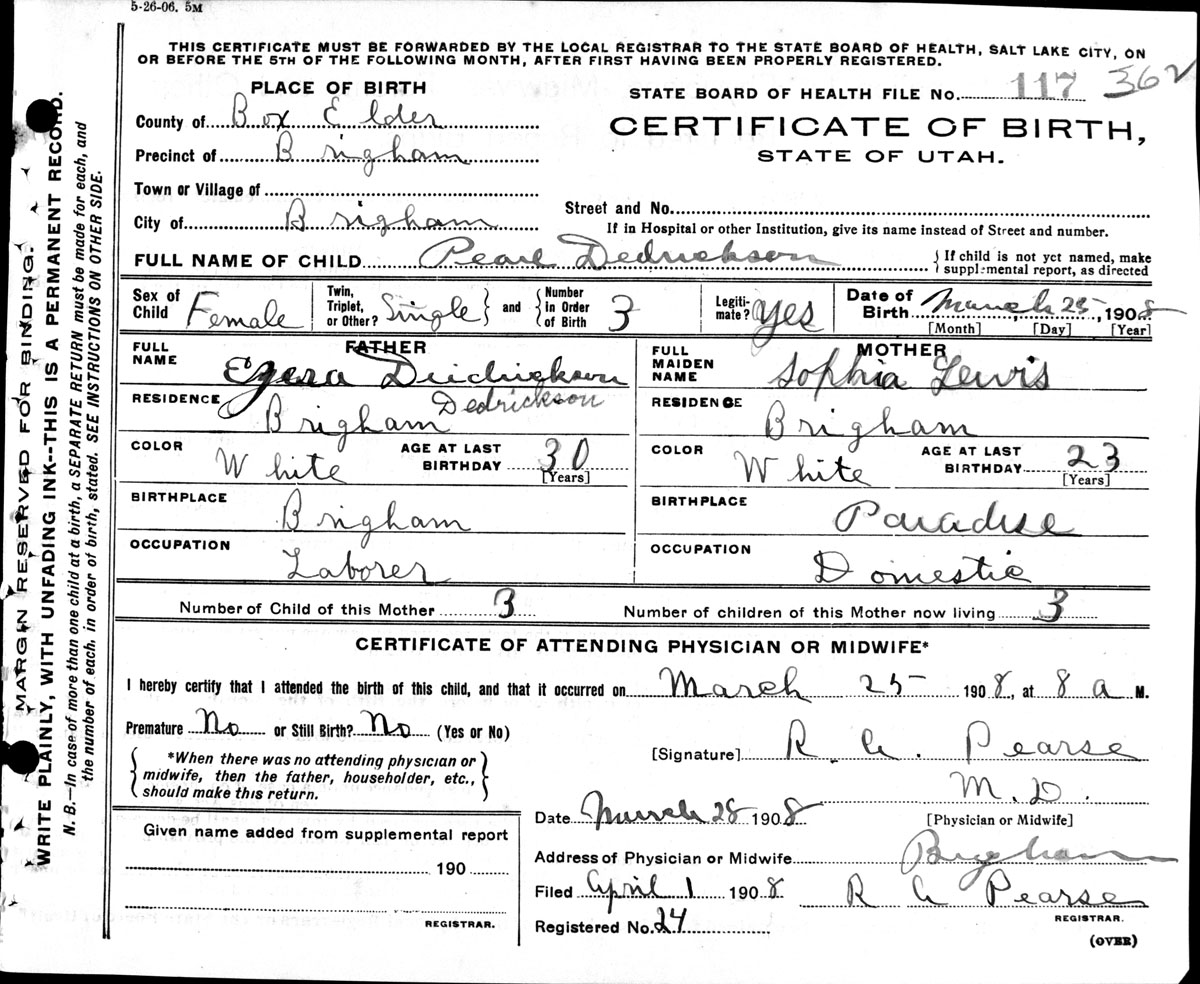 5-26-06. 5M
THIS CERTIFICATE MUST BE FORWARDED BY THE LOCAL REGISTRAR TO THE STATE BOARD OF HEALTH, SALT LAKE CITY, ON
OR BEFORE THE 5TH OF THE FOLLOWING MONTH, AFTER FIRST HAVING BEEN PROPERLY REGISTERED.
MARGIN RESERVED FOR BINDING.
WRITE PLAINLY, WITH UNFADING INK--THIS IS A PERMANENT RECORD.
N. B.—In case of more than one child at a birth, a SEPARATE RETURN must be made for each, and
the number of each, in order of birth, stated. SEE INSTRUCTIONS ON OTHER SIDE.
PLACE OF BIRTH
County of Box Elder
Precinct of Brigham
Town or Village of
City of Brigham
STATE BOARD OF HEALTH FILE No. 117 362
CERTIFICATE OF BIRTH,
STATE OF UTAH.
Street and No.
If in Hospital or other Institution, give its name instead of Street and number.
FULL NAME OF CHILD Pearl Dedrickson
If child is not yet named, make
supplemental report, as directed
Sex of Child Female
Twin, Triplet, or Other? Single and Number in Order of Birth 3
Legitimate? Yes
Date of Birth March 25, 1908
[Month] [Day] [Year]
FATHER
FULL NAME Ezera Deidrickson
Dedrickson
RESIDENCE Brigham
COLOR White AGE AT LAST BIRTHDAY 30
[Years]
BIRTHPLACE Brigham
OCCUPATION Laborer
MOTHER
FULL MAIDEN NAME Sophia Lewis
RESIDENCE Brigham
COLOR White AGE AT LAST BIRTHDAY 23
[Years]
BIRTHPLACE Paradise
OCCUPATION Domestic
Number of Child of this Mother 3 Number of children of this Mother now living 3
CERTIFICATE OF ATTENDING PHYSICIAN OR MIDWIFE*
I hereby certify that I attended the birth of this child, and that it occurred on March 25 1908, at 8 a M.
Premature No or Still Birth? No (Yes or No)
*When there was no attending physician or
midwife, then the father, householder, etc.,
should make this return.
[Signature] R. G. Pearse
M. D.
[Physician or Midwife]
Date March 28 1908
Given name added from supplemental report
190
REGISTRAR.
Address of Physician or Midwife Brigham
Filed April 1 1908 R G Pearse
REGISTRAR.
Registered No. 24
(OVER)